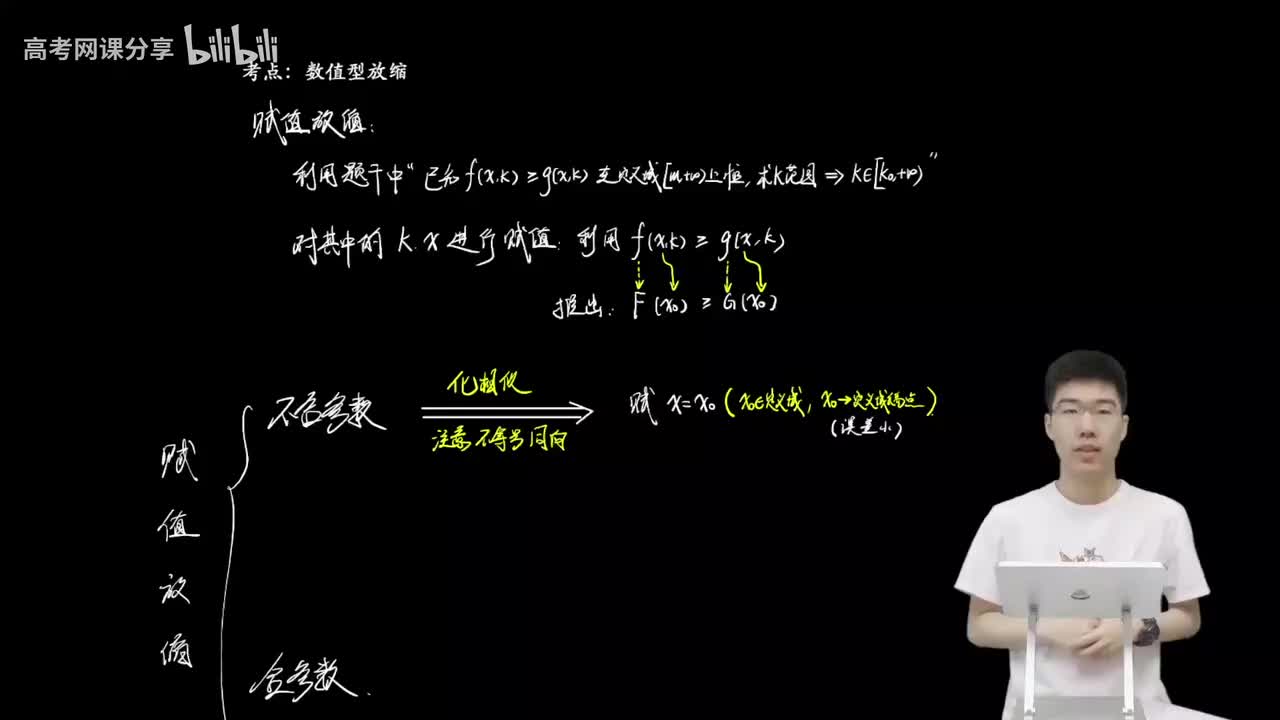 高考网课分享 bilibili
考点：数值型放缩
赋值放缩：
利用题干中“已知f(x,k)≥g(x,k)在定义域[m,+∞)上恒，求k范围⇒k∈[k₀,+∞)”
对其中的 k, x 进行赋值. 利用 f(x,k) ≥ g(x,k)
推出: F(x₀) ≥ G(x₀)
化相似
不含参数
赋 x=x₀ (x₀∈定义域, x₀→定义域端点)
注意不等号同向
(误差小)
赋值放缩
含参数.